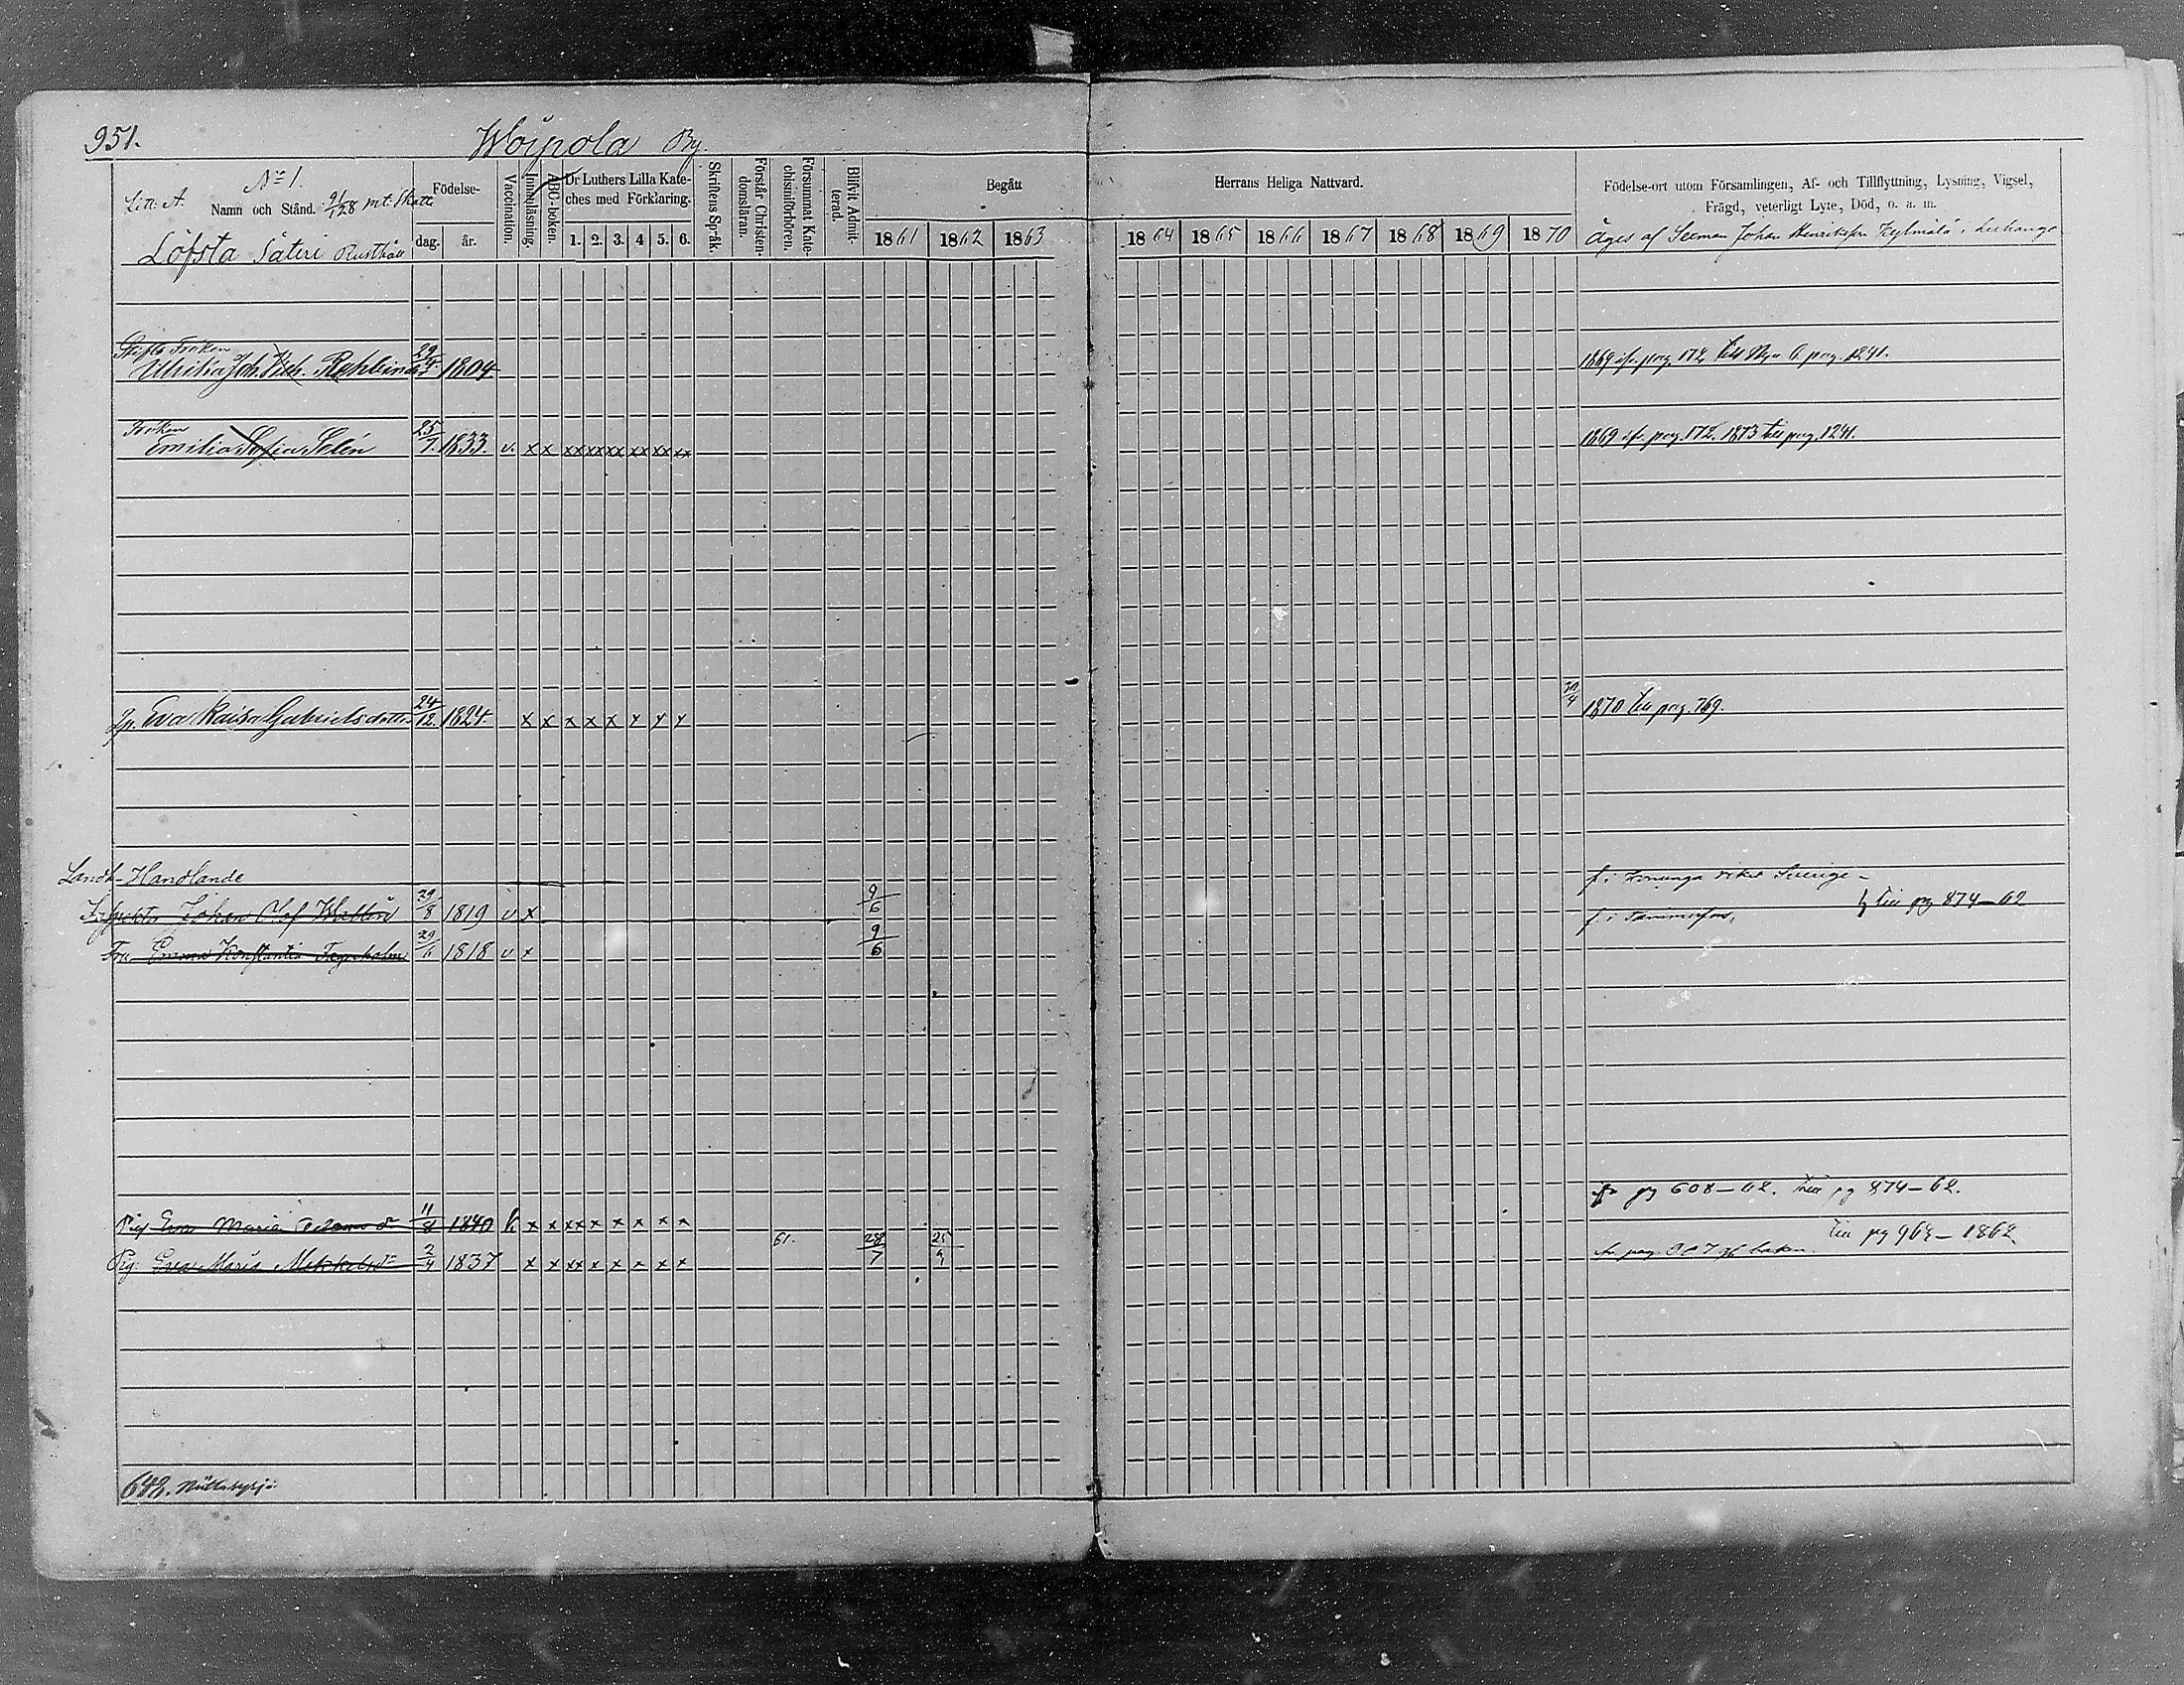 951.
Woipola By.
No 1.
Litt: A. Namn och Stånd. 91/128 mt. Skatt
Löfsta Säteri Rusthåll
Födelse-
dag. år.
Vaccination.
Innanläsning.
ABC-boken.
Dr Luthers Lilla Kate-
ches med Förklaring.
1. 2. 3. 4 5. 6.
Skriftens Språk.
Förstår Christen-
domsläran.
Försummat Kate-
chismiförhören.
Blifvit Admit-
terad.
Begått
Herrans Heliga Nattvard.
1861 1862 1863 1864 1865 1866 1867 1868 1869 1870
Födelse-ort utom Församlingen, Af- och Tillflyttning, Lysning, Vigsel,
Frägd, veterligt Lyte, Död, o. a. m.
Äges af Johan Henriksson i
Stifts Fröken
Ulrika Joh. Rehbinder 29/4 1804. 1869 ifr. pag. 172. till pag. 1241.
Fröken
Emilia Sofia Selén 25/7. 1833. v. x x xx xx xx xx xx xx 1869 ifr. pag. 172. 1873 till pag. 1241.
Eva Kaisa Gabrielsdotter 24/12. 1824. x x x x x x x x 30/4 1870 till pag. 769.
Landt-Handlande
Inspektor Johan Olof 29/8 1819 v x 9/6 f. i Konunga riket Sverige - till pg 874-62
Fru Emma Konstantia 29/6 1818 v x 9/6 f. i Tammerfors,
Pig Eva Maria 11/8 1840 x x xx x x x x x fr pg 608-62. till pg 874-62.
Pig. Eva Maria 2/4 1837 x x xx x x x x x 61. 28/7 fr. pag. af boken. till pg 963-1862
648.